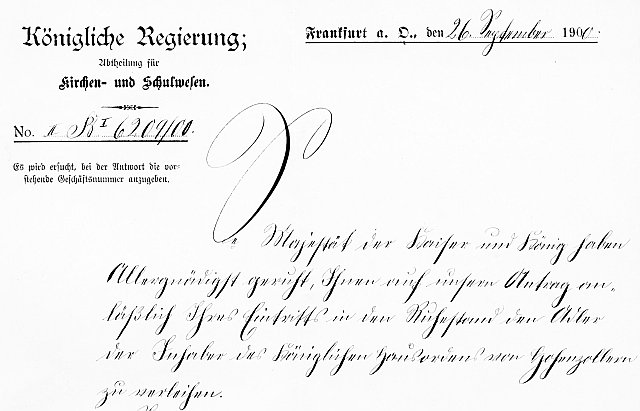 Königliche Regierung;
Abtheilung für
Kirchen- und Schulwesen.
Frankfurt a. O., den 26. September 1900.
No. II B I 6209/00.
Es wird ersucht, bei der Antwort die vor-
stehende Geschäftsnummer anzugeben.
Se. Majestät der Kaiser und König haben
Allergnädigst geruht, Ihnen auf unsern Antrag an-
läßlich Ihres Eintritts in den Ruhestand den Adler
der Inhaber des Königlichen Hausordens von Hohenzollern
zu verleihen.